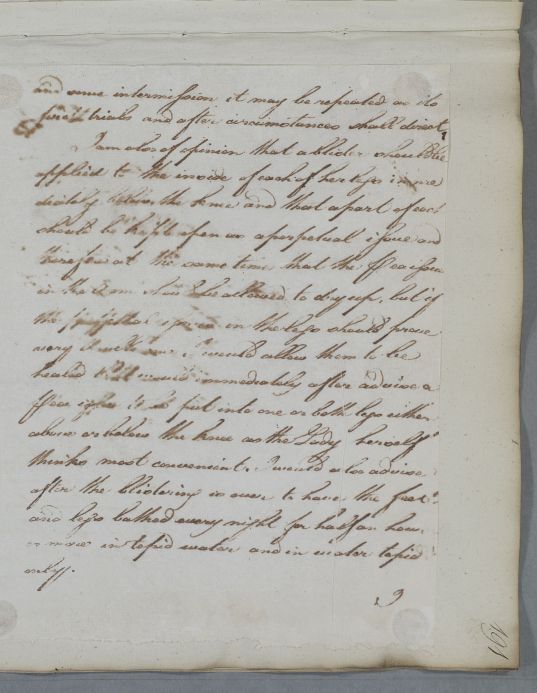 and some intermission it may be repeated as its
first trials and after circumstances shall direct,
I am also of opinion that a blister should be
applied to the inside of each of her legs imme
diately below the knee and that a part of each
should be kept open as a perpetual issue and
therefore at the same time that the
in the Arm should be allowed to dry up, but if
the perpetual issues in the legs should prove
very I would allow them to be
healed immediately after advise a
put into one or both legs either
above or below the knee as the Lady herself
thinks most convenient. I would also advise
after the blistering is over to have the feet
and legs bathed every night for half an hour
or more in tepid water and in water tepid
only.
161